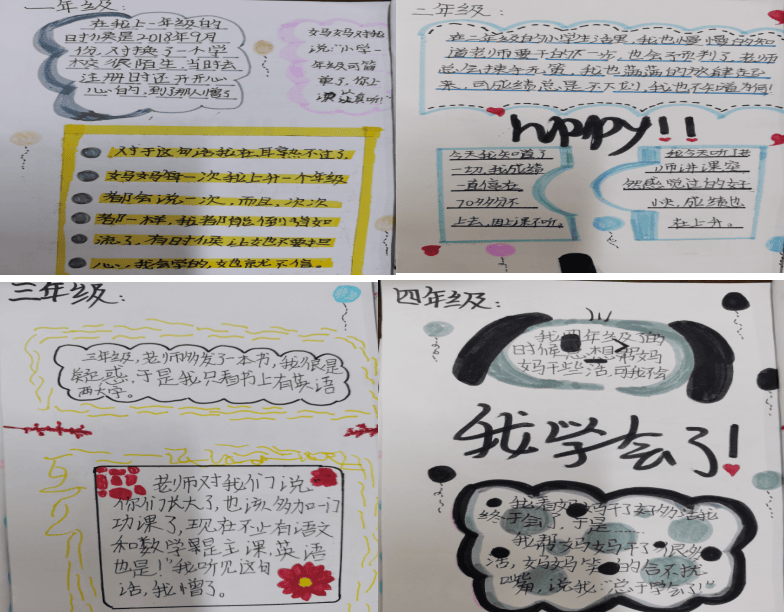 一年级：
在我上一年级的
时候是2018年9月
份，对换了一个学
校很陌生，当时去
注册时还开开心
心的，到了那人懵了
妈妈对我
说："小学一
年级可简
单了，你上
课认真听!
对于这句话我在耳熟不过了，
妈妈每一次我上升一个年级
都会说一次，而且，次次
都一样，我都能倒背如
流了，有时候让她不要担
心，我会学的，她就不信。
二年级：
在二年级的小学生活里，我也慢慢的知
道老师要干的下一步，也会预判了，老师
总会抽查
来，可成绩总是不下列，我也不知道为何!
happy!!
今天我知道了
一切，我成绩
一直停在
70多分不
上去，因上课不听。
我今天听老
师讲课突
然感觉过的好
快，成绩也
在上升。
三年级：
三年级，老师分发了一本书，我很是
疑惑，于是我只看书上有英语
两大字。
老师对我们说：
"你们长大了，也该多加一门
功课了，现在不止有语文
和数学是主课，英语
也是!"我听见这句
话，我懵了。
四年级：
我四年级了的
时候想帮妈
妈干些活，可我不会
我学会了!
我看妈妈干了好多活我
终于会了，于是
我帮妈妈干了很多
活，妈妈笑的合不拢
嘴，说我："总于学会了!"